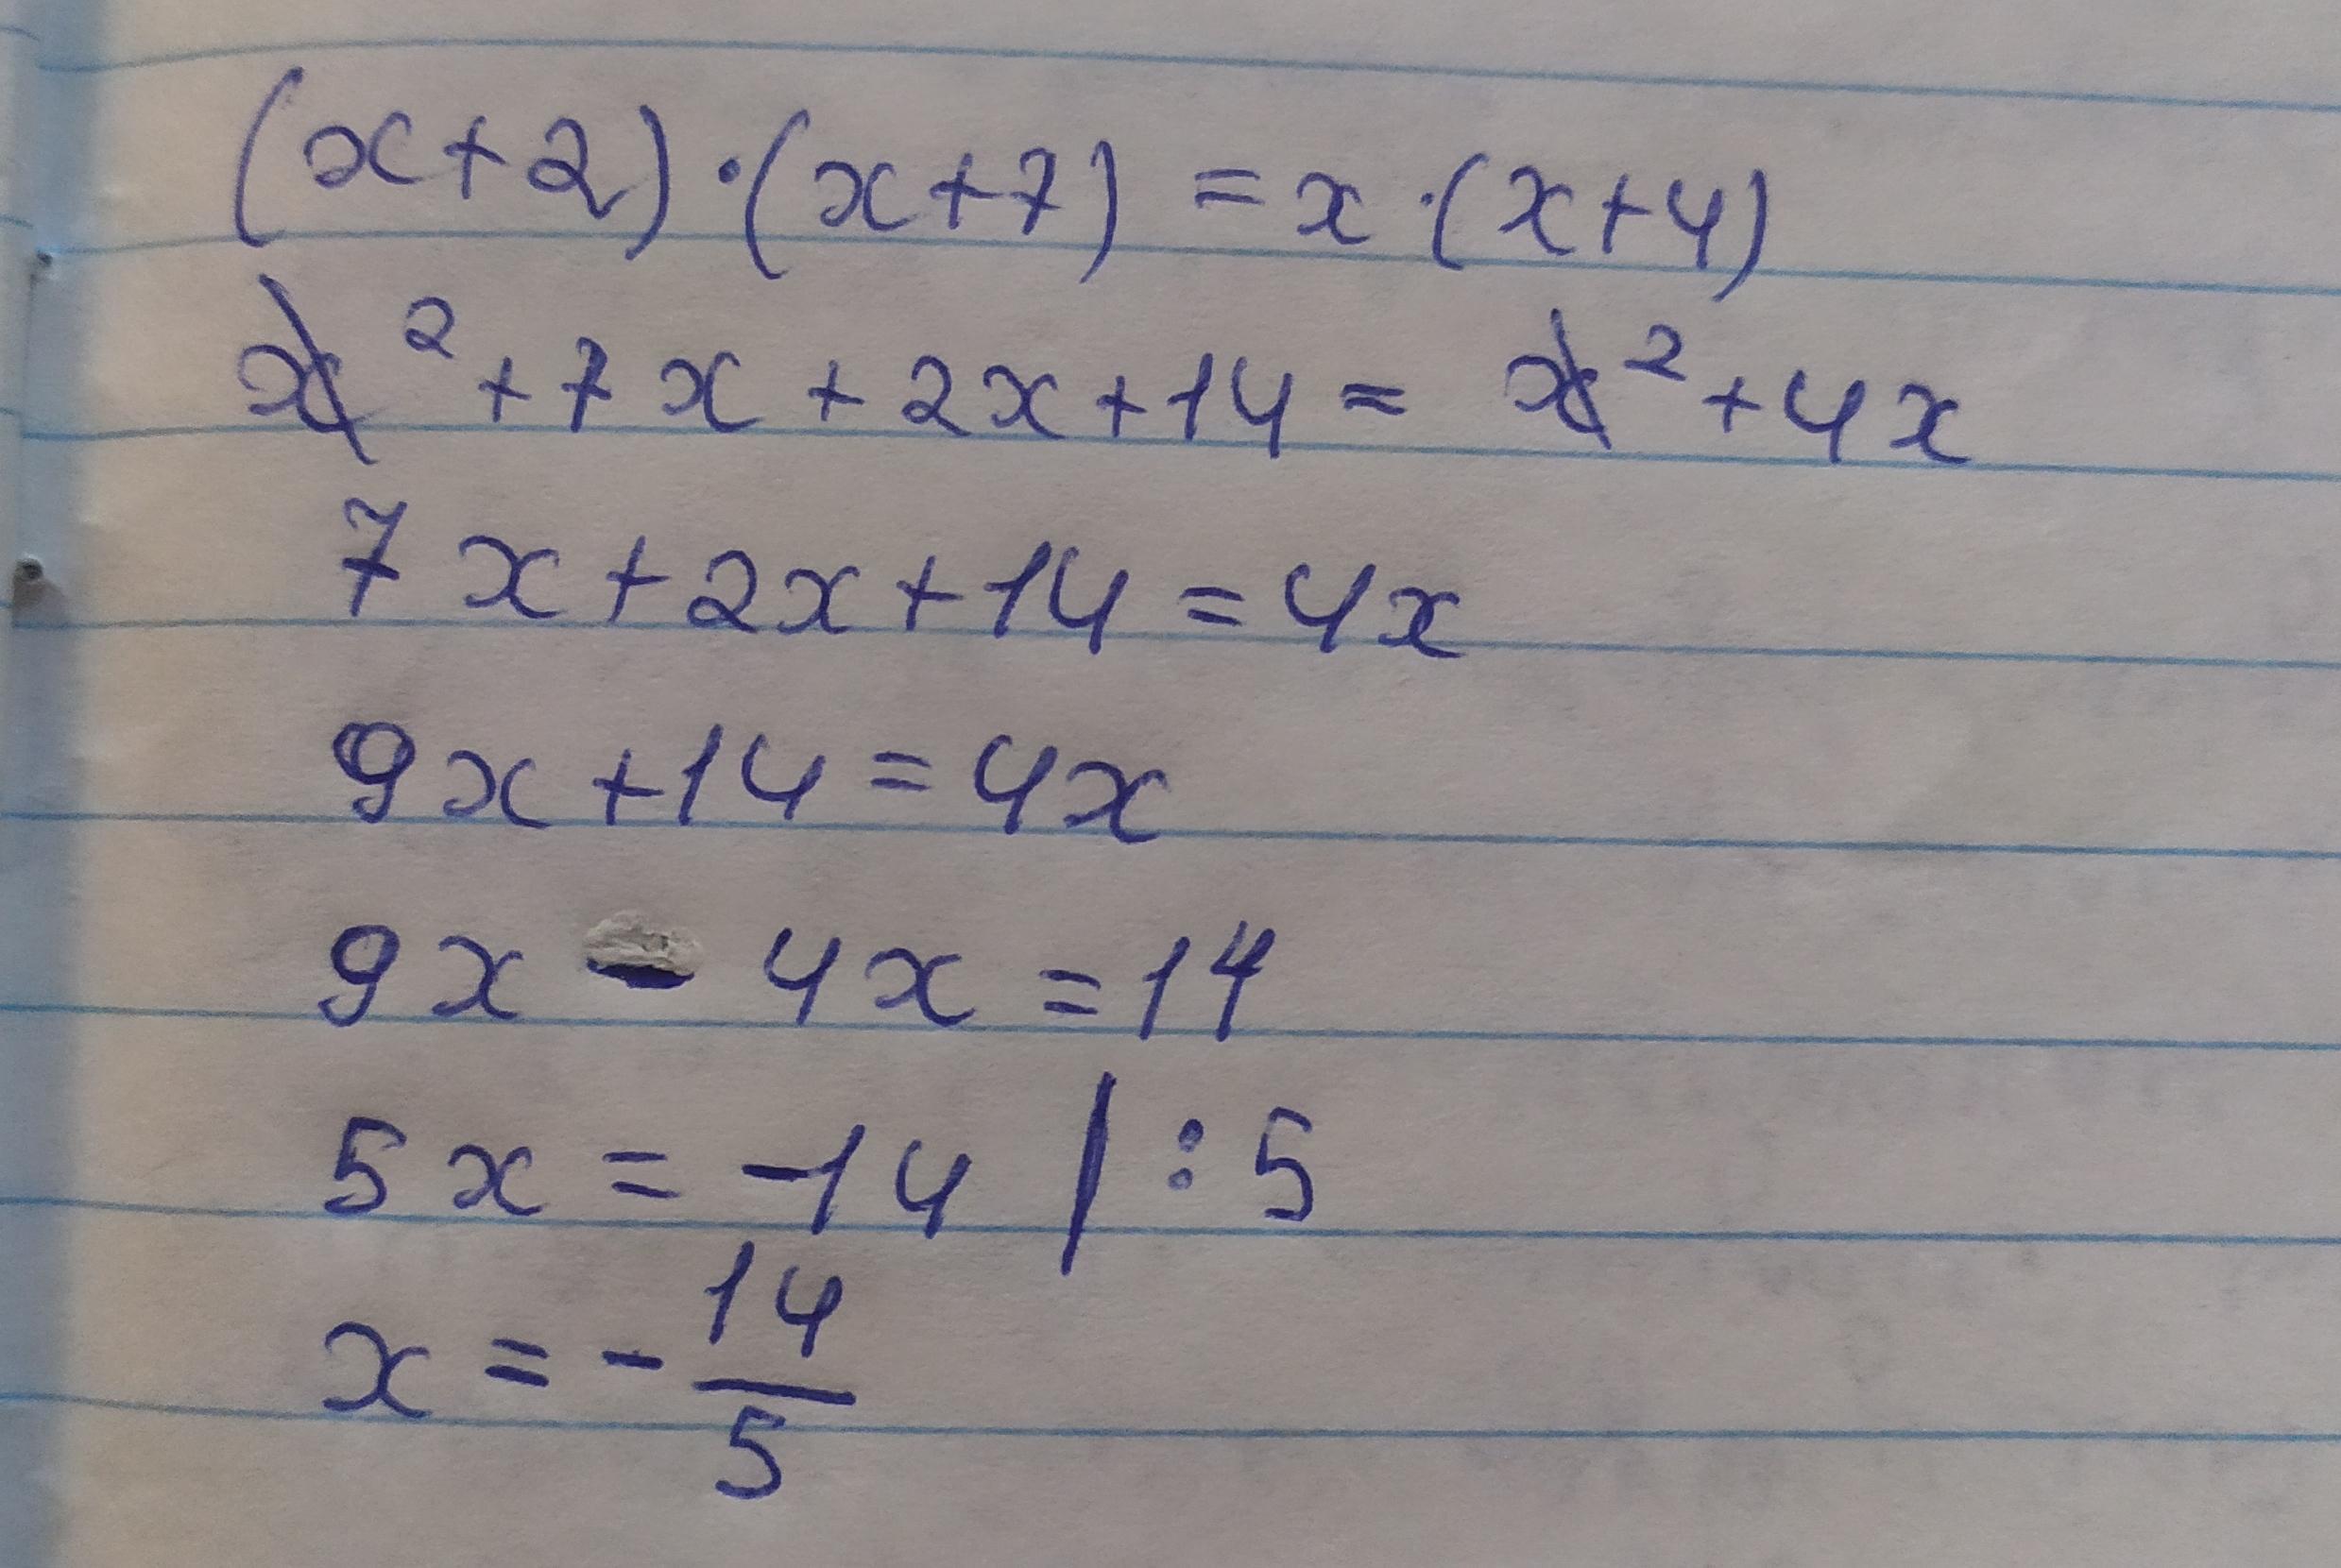 (x+2)·(x+7)=x·(x+4)
x²+7x+2x+14=x²+4x
7x+2x+14=4x
9x+14=4x
9x-4x=14
5x=-14 | :5
x=-14/5